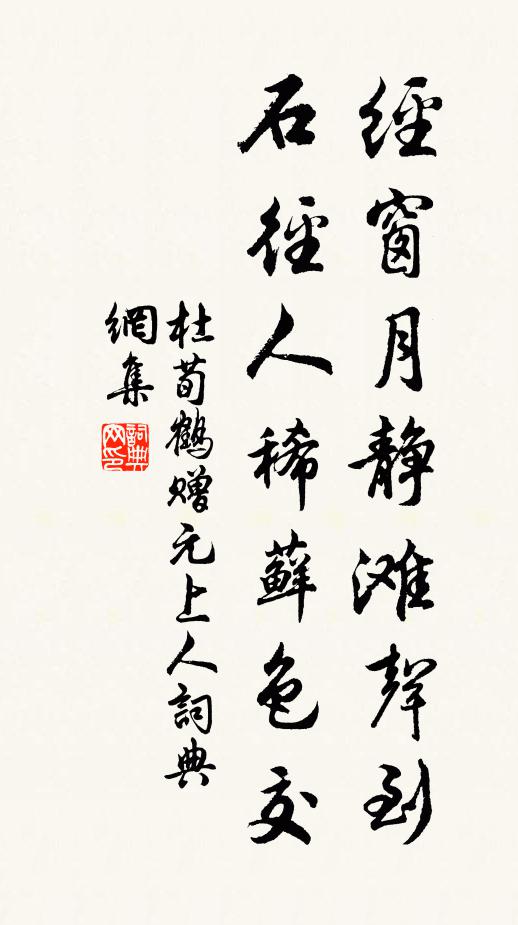 經窗月静滩聲到
石徑人稀蘚色交
杜荀鶴贈元上人詞典
網集
詞典
网印